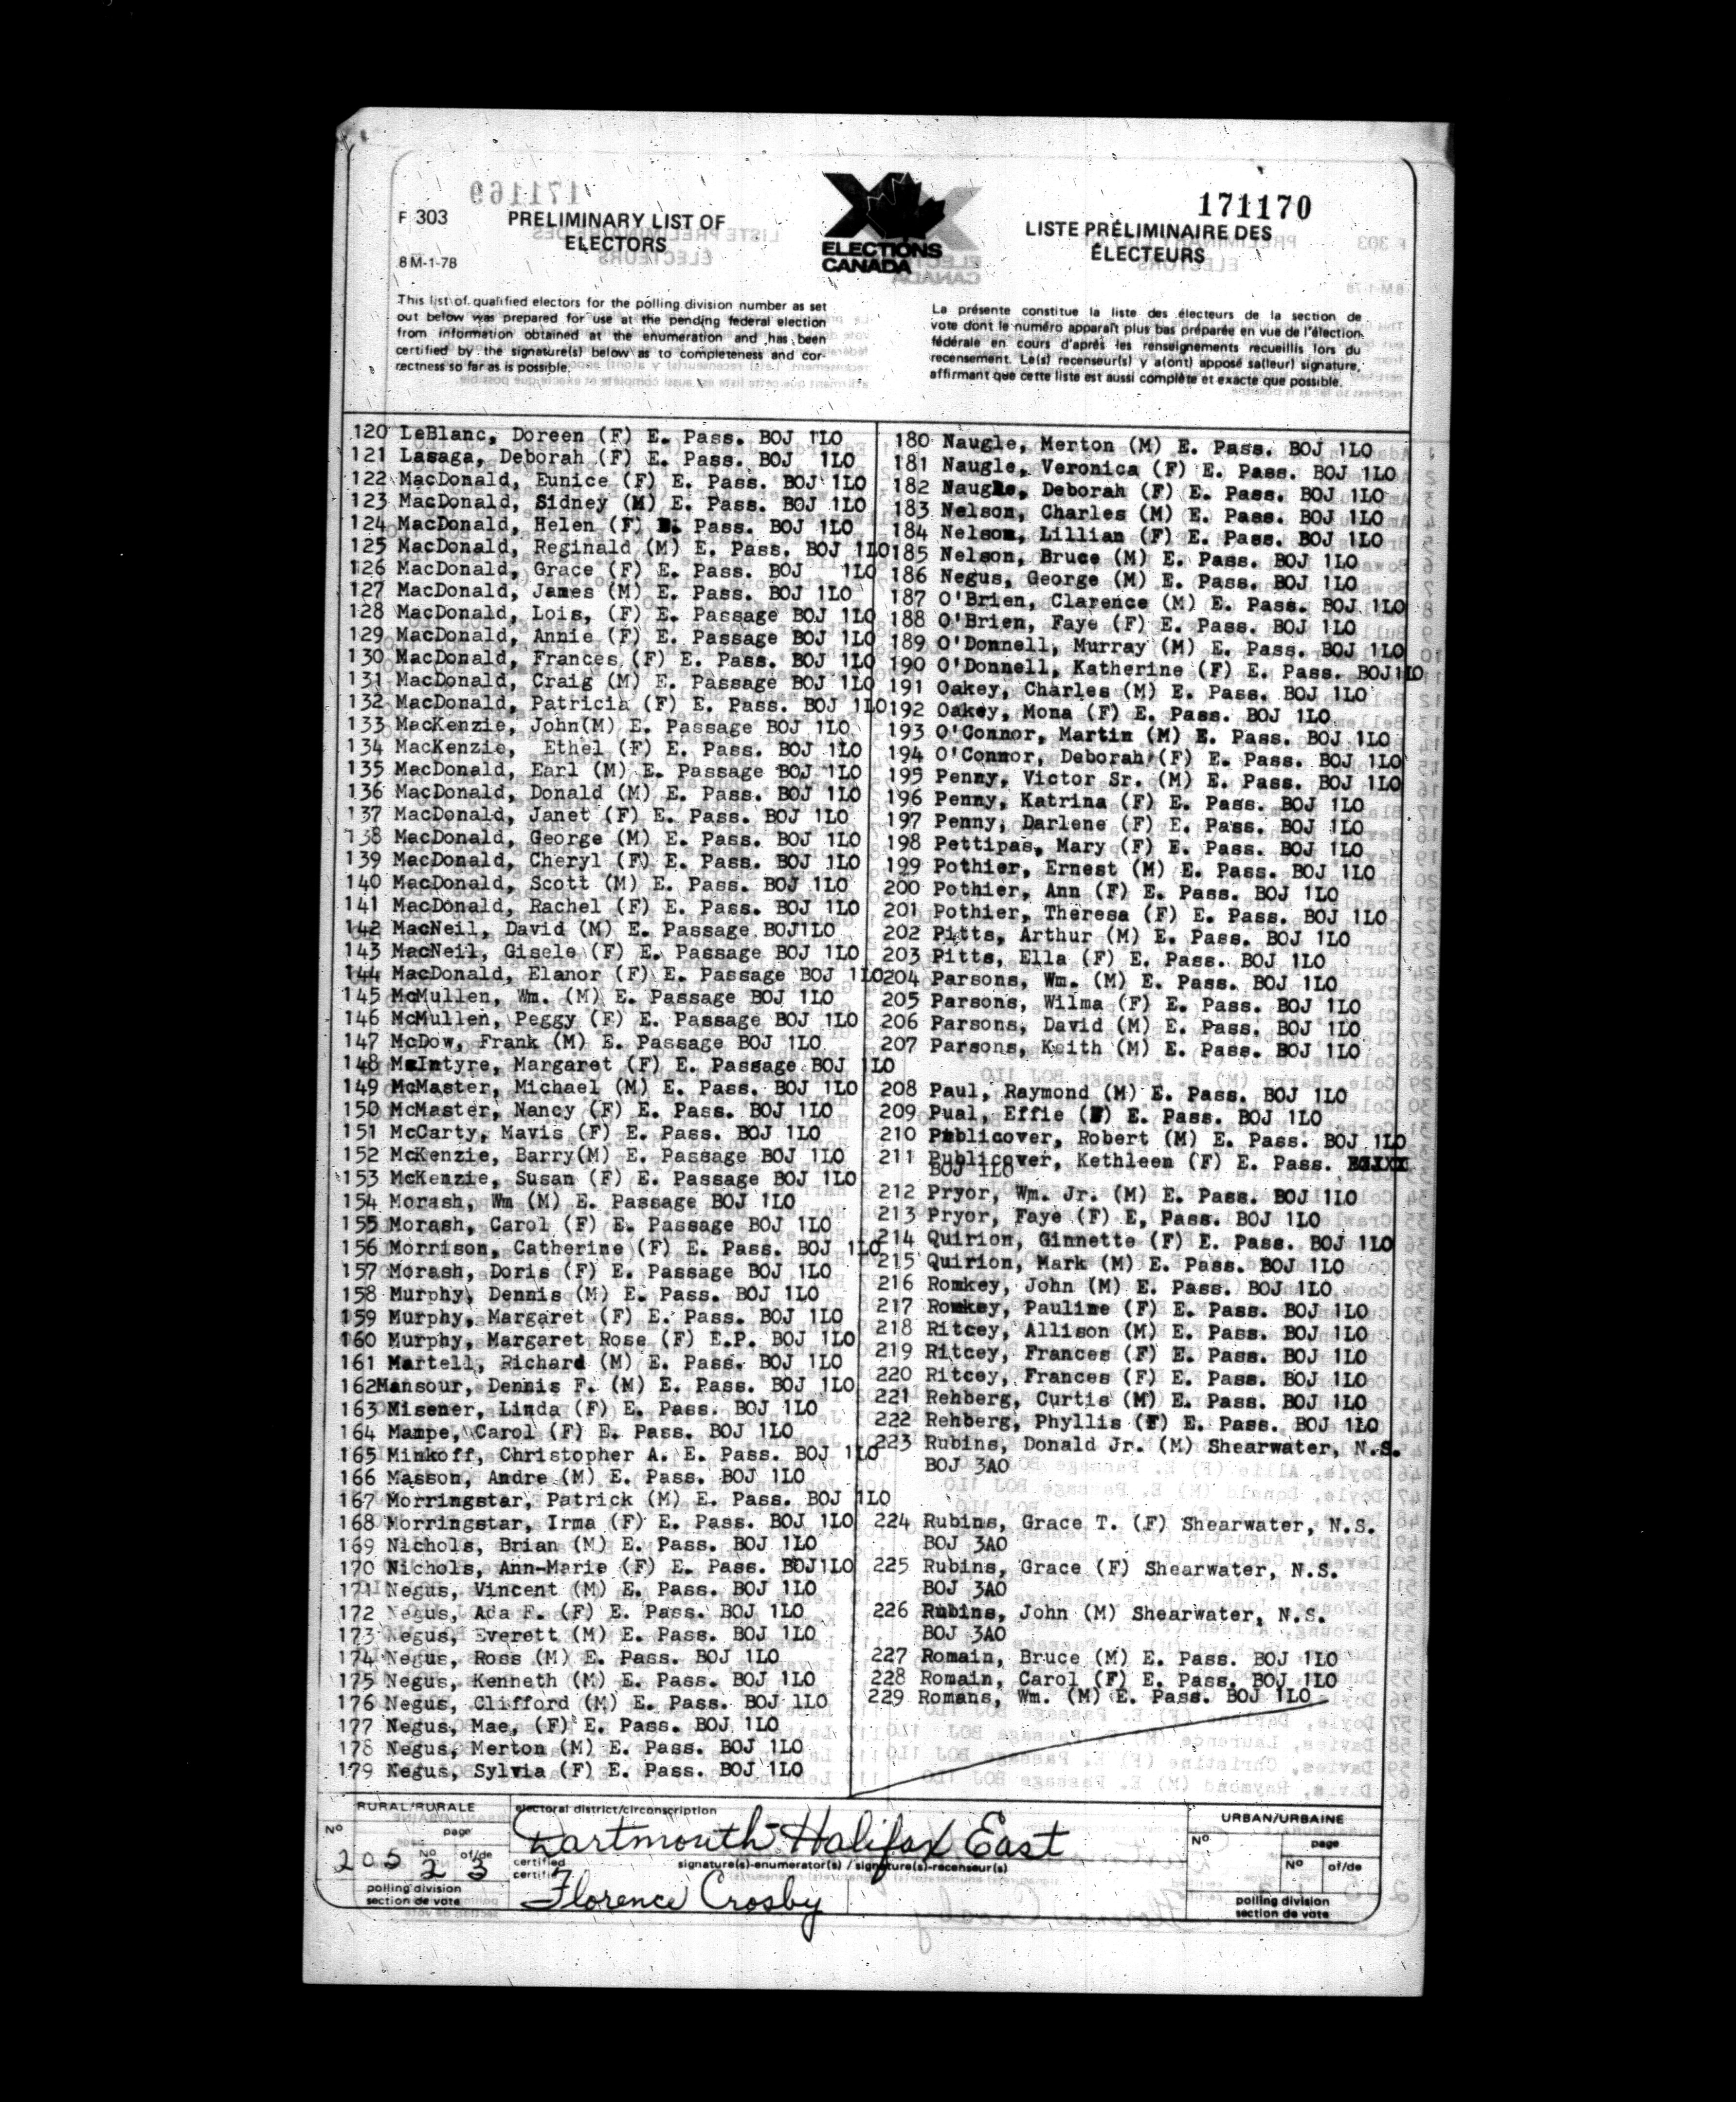 171170
F 303
PRELIMINARY LIST OF
ELECTORS
8 M-1-78
ELECTIONS
CANADA
LISTE PRÉLIMINAIRE DES
ÉLECTEURS
This list of qualified electors for the polling division number as set
out below was prepared for use at the pending federal election
from information obtained at the enumeration and has been
certified by the signature(s) below as to completeness and cor-
rectness so far as is possible.
La présente constitue la liste des électeurs de la section de
vote dont le numéro apparaît plus bas préparée en vue de l'élection
fédérale en cours d'après les renseignements recueillis lors du
recensement. Le(s) recenseur(s) y a(ont) apposé sa(leur) signature,
affirmant que cette liste est aussi complète et exacte que possible.
120 LeBlanc, Doreen (F) E. Pass. BOJ 1LO
121 Lasaga, Deborah (F) E. Pass. BOJ 1LO
122 MacDonald, Eunice (F) E. Pass. BOJ 1LO
123 MacDonald, Sidney (M) E. Pass. BOJ 1LO
124 MacDonald, Helen (F) E. Pass. BOJ 1LO
125 MacDonald, Reginald (M) E. Pass. BOJ 1LO
126 MacDonald, Grace (F) E. Pass. BOJ 1LO
127 MacDonald, James (M) E. Pass. BOJ 1LO
128 MacDonald, Lois, (F) E. Passage BOJ 1LO
129 MacDonald, Annie (F) E. Passage BOJ 1LO
130 MacDonald, Frances (F) E. Pass. BOJ 1LO
131 MacDonald, Craig (M) E. Passage BOJ 1LO
132 MacDonald, Patricia (F) E. Pass. BOJ 1LO
133 MacKenzie, John(M) E. Passage BOJ 1LO
134 MacKenzie, Ethel (F) E. Pass. BOJ 1LO
135 MacDonald, Earl (M) E. Passage BOJ 1LO
136 MacDonald, Donald (M) E. Pass. BOJ 1LO
137 MacDonald, Janet (F) E. Pass. BOJ 1LO
138 MacDonald, George (M) E. Pass. BOJ 1LO
139 MacDonald, Cheryl (F) E. Pass. BOJ 1LO
140 MacDonald, Scott (M) E. Pass. BOJ 1LO
141 MacDonald, Rachel (F) E. Pass. BOJ 1LO
142 MacNeil, David (M) E. Passage BOJ1LO
143 MacNeil, Gisele (F) E. Passage BOJ 1LO
144 MacDonald, Elanor (F) E. Passage BOJ 1LO
145 McMullen, Wm. (M) E. Passage BOJ 1LO
146 McMullen, Peggy (F) E. Passage BOJ 1LO
147 McDow, Frank (M) E. Passage BOJ 1LO
148 McIntyre, Margaret (F) E. Passage BOJ 1LO
149 McMaster, Michael (M) E. Pass. BOJ 1LO
150 McMaster, Nancy (F) E. Pass. BOJ 1LO
151 McCarty, Mavis (F) E. Pass. BOJ 1LO
152 McKenzie, Barry(M) E. Passage BOJ 1LO
153 McKenzie, Susan (F) E. Passage BOJ 1LO
154 Morash, Wm (M) E. Passage BOJ 1LO
155 Morash, Carol (F) E. Passage BOJ 1LO
156 Morrison, Catherine (F) E. Pass. BOJ 1LO
157 Morash, Doris (F) E. Passage BOJ 1LO
158 Murphy, Dennis (M) E. Pass. BOJ 1LO
159 Murphy, Margaret (F) E. Pass. BOJ 1LO
160 Murphy, Margaret Rose (F) E.P. BOJ 1LO
161 Martell, Richard (M) E. Pass. BOJ 1LO
162Mansour, Dennis F. (M) E. Pass. BOJ 1LO
163 Misener, Linda (F) E. Pass. BOJ 1LO
164 Mampe, Carol (F) E. Pass. BOJ 1LO
165 Minkoff, Christopher A. E. Pass. BOJ 1LO
166 Masson, Andre (M) E. Pass. BOJ 1LO
167 Morringstar, Patrick (M) E. Pass. BOJ 1LO
168 Morringstar, Irma (F) E. Pass. BOJ 1LO
169 Nichols, Brian (M) E. Pass. BOJ 1LO
170 Nichols, Ann-Marie (F) E. Pass. BOJ1LO
171 Negus, Vincent (M) E. Pass. BOJ 1LO
172 Negus, Ada F. (F) E. Pass. BOJ 1LO
173 Negus, Everett (M) E. Pass. BOJ 1LO
174 Negus, Ross (M) E. Pass. BOJ 1LO
175 Negus, Kenneth (M) E. Pass. BOJ 1LO
176 Negus, Clifford (M) E. Pass. BOJ 1LO
177 Negus, Mae, (F) E. Pass. BOJ 1LO
178 Negus, Merton (M) E. Pass. BOJ 1LO
179 Negus, Sylvia (F) E. Pass. BOJ 1LO
180 Naugle, Merton (M) E. Pass. BOJ 1LO
181 Naugle, Veronica (F) E. Pass. BOJ 1LO
182 Naugle, Deborah (F) E. Pass. BOJ 1LO
183 Nelson, Charles (M) E. Pass. BOJ 1LO
184 Nelson, Lillian (F) E. Pass. BOJ 1LO
185 Nelson, Bruce (M) E. Pass. BOJ 1LO
186 Negus, George (M) E. Pass. BOJ 1LO
187 O'Brien, Clarence (M) E. Pass. BOJ 1LO
188 O'Brien, Faye (F) E. Pass. BOJ 1LO
189 O'Donnell, Murray (M) E. Pass. BOJ 1LO
190 O'Donnell, Katherine (F) E. Pass. BOJ1LO
191 Oakey, Charles (M) E. Pass. BOJ 1LO
192 Oakey, Mona (F) E. Pass. BOJ 1LO
193 O'Connor, Martin (M) E. Pass. BOJ 1LO
194 O'Connor, Deborah (F) E. Pass. BOJ 1LO
195 Penny, Victor Sr. (M) E. Pass. BOJ 1LO
196 Penny, Katrina (F) E. Pass. BOJ 1LO
197 Penny, Darlene (F) E. Pass. BOJ 1LO
198 Pettipas, Mary (F) E. Pass. BOJ 1LO
199 Pothier, Ernest (M) E. Pass. BOJ 1LO
200 Pothier, Ann (F) E. Pass. BOJ 1LO
201 Pothier, Theresa (F) E. Pass. BOJ 1LO
202 Pitts, Arthur (M) E. Pass. BOJ 1LO
203 Pitts, Ella (F) E. Pass. BOJ 1LO
204 Parsons, Wm. (M) E. Pass. BOJ 1LO
205 Parsons, Wilma (F) E. Pass. BOJ 1LO
206 Parsons, David (M) E. Pass. BOJ 1LO
207 Parsons, Keith (M) E. Pass. BOJ 1LO
208 Paul, Raymond (M) E. Pass. BOJ 1LO
209 Pual, Effie (F) E. Pass. BOJ 1LO
210 Publicover, Robert (M) E. Pass. BOJ 1LO
211 Publicover, Kethleen (F) E. Pass.
BOJ 1LO
212 Pryor, Wm. Jr. (M) E. Pass. BOJ 1LO
213 Pryor, Faye (F) E, Pass. BOJ 1LO
214 Quirion, Ginnette (F) E. Pass. BOJ 1LO
215 Quirion, Mark (M) E. Pass. BOJ 1LO
216 Romkey, John (M) E. Pass. BOJ 1LO
217 Romkey, Pauline (F) E. Pass. BOJ 1LO
218 Ritcey, Allison (M) E. Pass. BOJ 1LO
219 Ritcey, Frances (F) E. Pass. BOJ 1LO
220 Ritcey, Frances (F) E. Pass. BOJ 1LO
221 Rehberg, Curtis (M) E. Pass. BOJ 1LO
222 Rehberg, Phyllis (F) E. Pass. BOJ 1LO
223 Rubins, Donald Jr. (M) Shearwater, N.S.
BOJ 3AO
224 Rubins, Grace T. (F) Shearwater, N.S.
BOJ 3AO
225 Rubins, Grace (F) Shearwater, N.S.
BOJ 3AO
226 Rubins, John (M) Shearwater, N.S.
BOJ 3AO
227 Romain, Bruce (M) E. Pass. BOJ 1LO
228 Romain, Carol (F) E. Pass. BOJ 1LO
229 Romans, Wm. (M) E. Pass. BOJ 1LO
RURAL/RURALE
No
page
205
No
2
of/de
3
polling division
section de vote
electoral district/circonscription
Dartmouth-Halifax East
certified
certifié
signature(s)-enumerator(s) / signature(s)-recenseur(s)
Florence Crosby
URBAN/URBAINE
No
page
No
of/de
polling division
section de vote